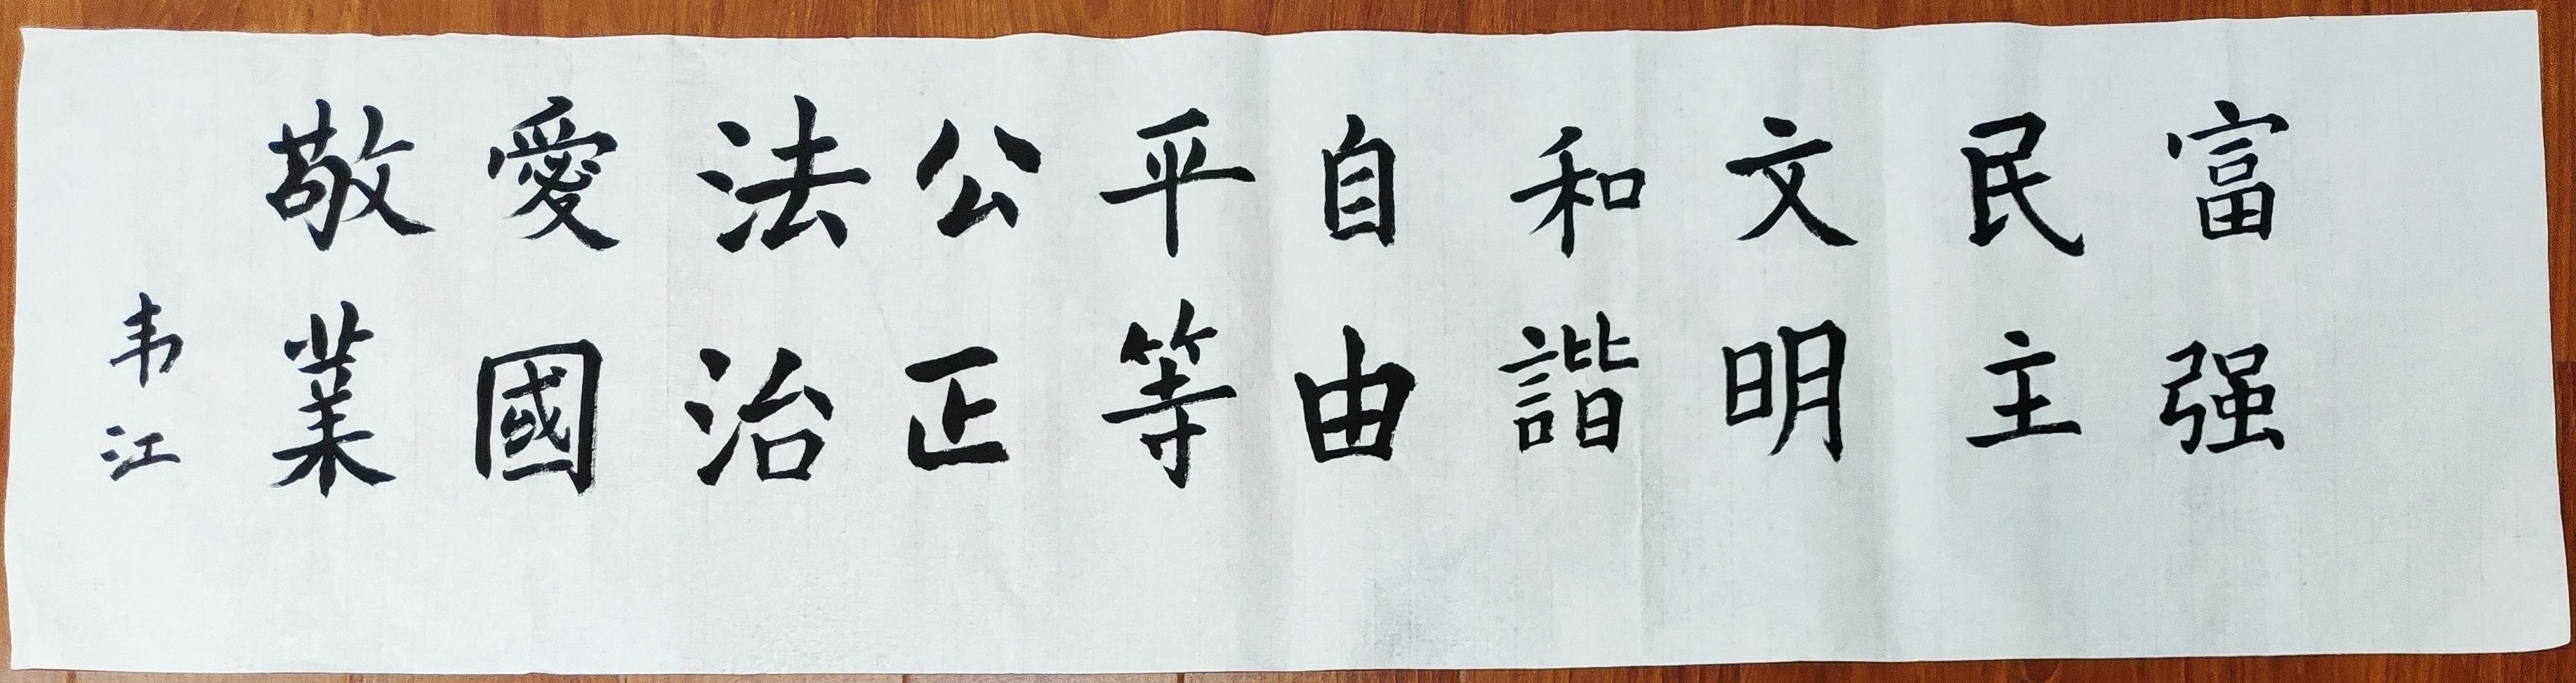 富强
民主
文明
和諧
自由
平等
公正
法治
愛國
敬業
韦江